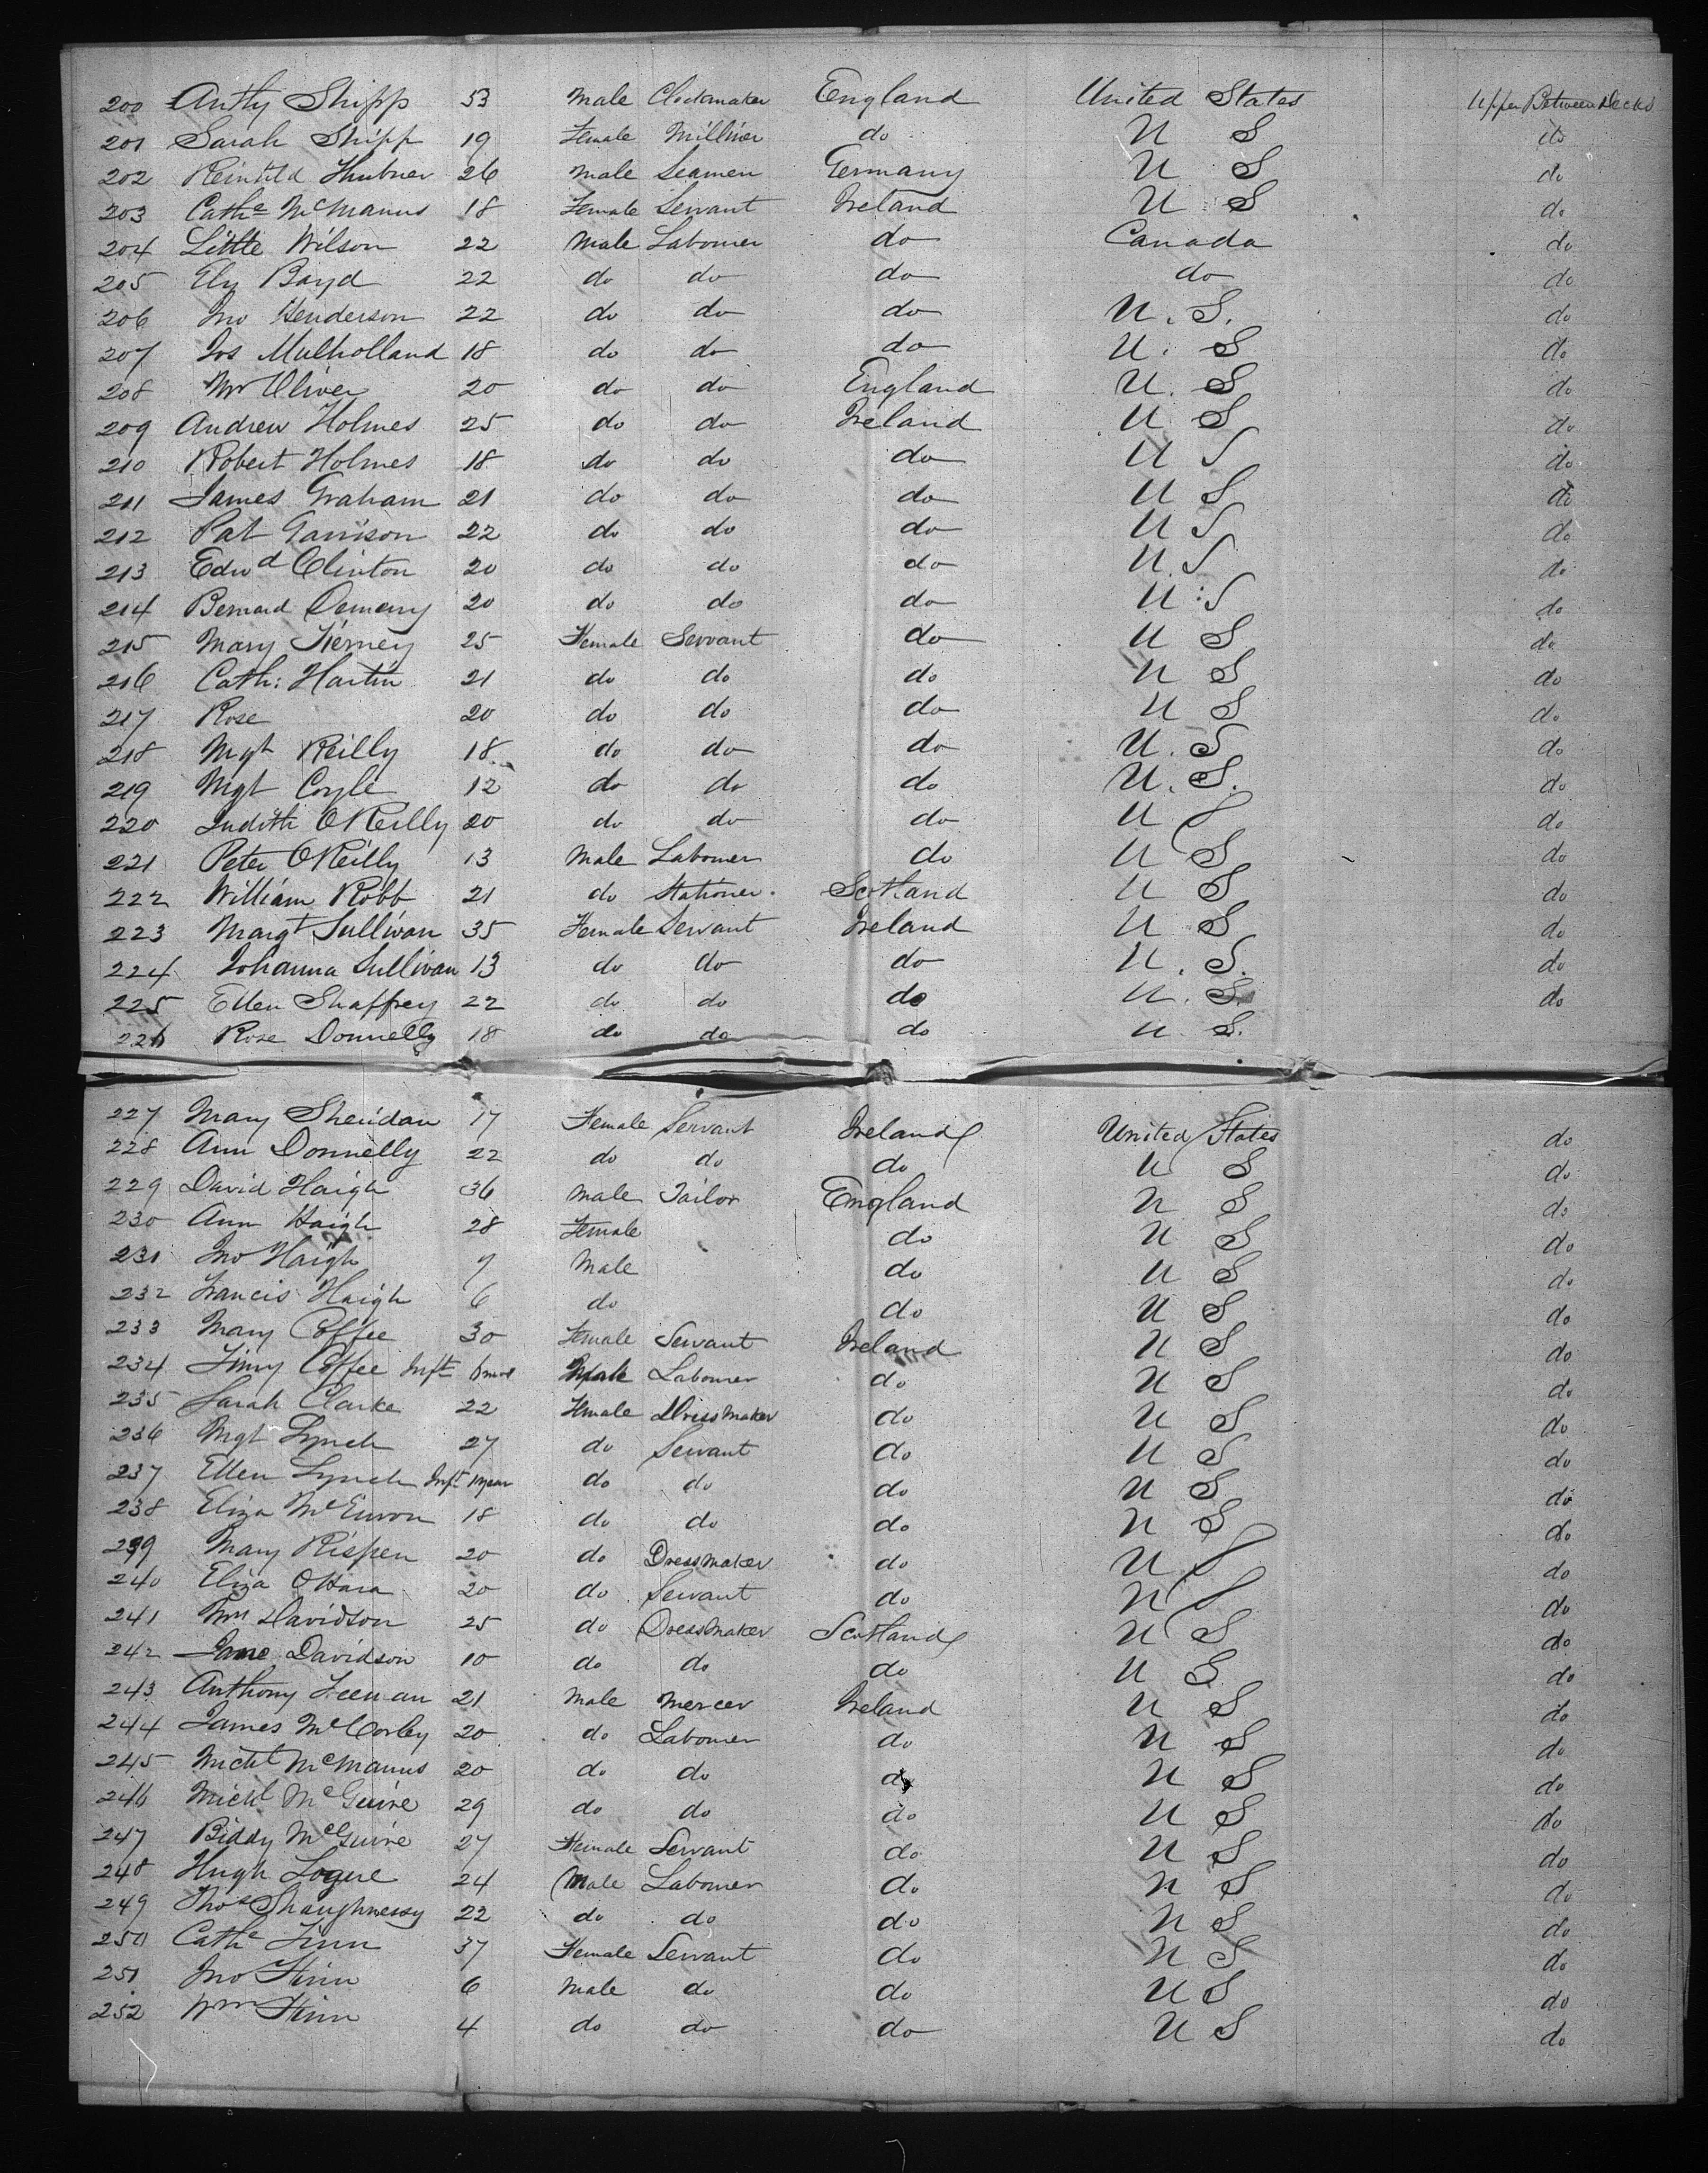 200 Anthy Shipp 53 Male Clockmaker England United States Upper Between Decks
201 Sarah Shipp 19 Female Milliner do U S do
202 Hubner 26 Male Seamen Germany U S do
203 Cathe McManus 18 Female Servant Ireland U S do
204 Little Wilson 22 Male Labourer do Canada do
205 Ely Boyd 22 do do do do do
206 Jno Henderson 22 do do do U. S. do
207 Jos Mulholland 18 do do do U. S do
208 Oliver 20 do do England U. S do
209 Andrew Holmes 25 do do Ireland U S do
210 Robert Holmes 18 do do do U S do
211 James Graham 21 do do do U S do
212 Pat Garrison 22 do do do U S do
213 Edwd Clinton 20 do do do U. S do
214 Bernard 20 do do do U. S do
215 Mary Tierney 25 Female Servant do U S do
216 Cath: Hartin 21 do do do U S do
217 Rose 20 do do do U S do
218 Mgt Reilly 18 do do do U. S do
219 Mgt Coyle 12 do do do U. S. do
220 Judith OReilly 20 do do do U S do
221 Peter OReilly 13 Male Labourer do U S do
222 William Robb 21 do Stationer. Scotland U S do
223 Margt Sullivan 35 Female Servant Ireland U S do
224 Johanna Sullivan 13 do do do U. S. do
225 Ellen Shaffrey 22 do do do U. S. do
226 Rose Donnelly 18 do do do U. S.
227 Mary Sheridan 17 Female Servant Ireland United States do
228 Ann Donnelly 22 do do do U S do
229 David Haigh 36 Male Tailor England U S do
230 Ann Haigh 28 Female do U S do
231 Jno Haigh 7 Male do U S do
232 Francis Haigh 6 do do U S do
233 Mary Coffee 30 Female Servant Ireland U S do
234 Coffee Inft 6 mos Male Labourer do U S do
235 Sarah Clarke 22 Female Dressmaker do U S do
236 Mgt Lynch 27 do Servant do U S do
237 Ellen Lynch Inft 1 year do do do U S do
238 Eliza 18 do do do U S do
239 Mary Rispen 20 do Dressmaker do U S do
240 Eliza OHara 20 do Servant do U S do
241 Davidson 25 do Dressmaker Scotland U S do
242 Jane Davidson 10 do do do U S do
243 Anthony Feenan 21 Male Mercer Ireland U S do
244 James McCorley 20 do Labourer do U S do
245 Michl McManus 20 do do do U S do
246 Michl McGuire 29 do do do U S do
247 Biddy McGuire 27 Female Servant do U S do
248 Hugh Logue 24 Male Labourer do U S do
249 Thos Shaughnessy 22 do do do U S do
250 Cathe Finn 37 Female Servant do U S do
251 Jno Finn 6 Male do do U S do
252 Wm Finn 4 do do do U S do